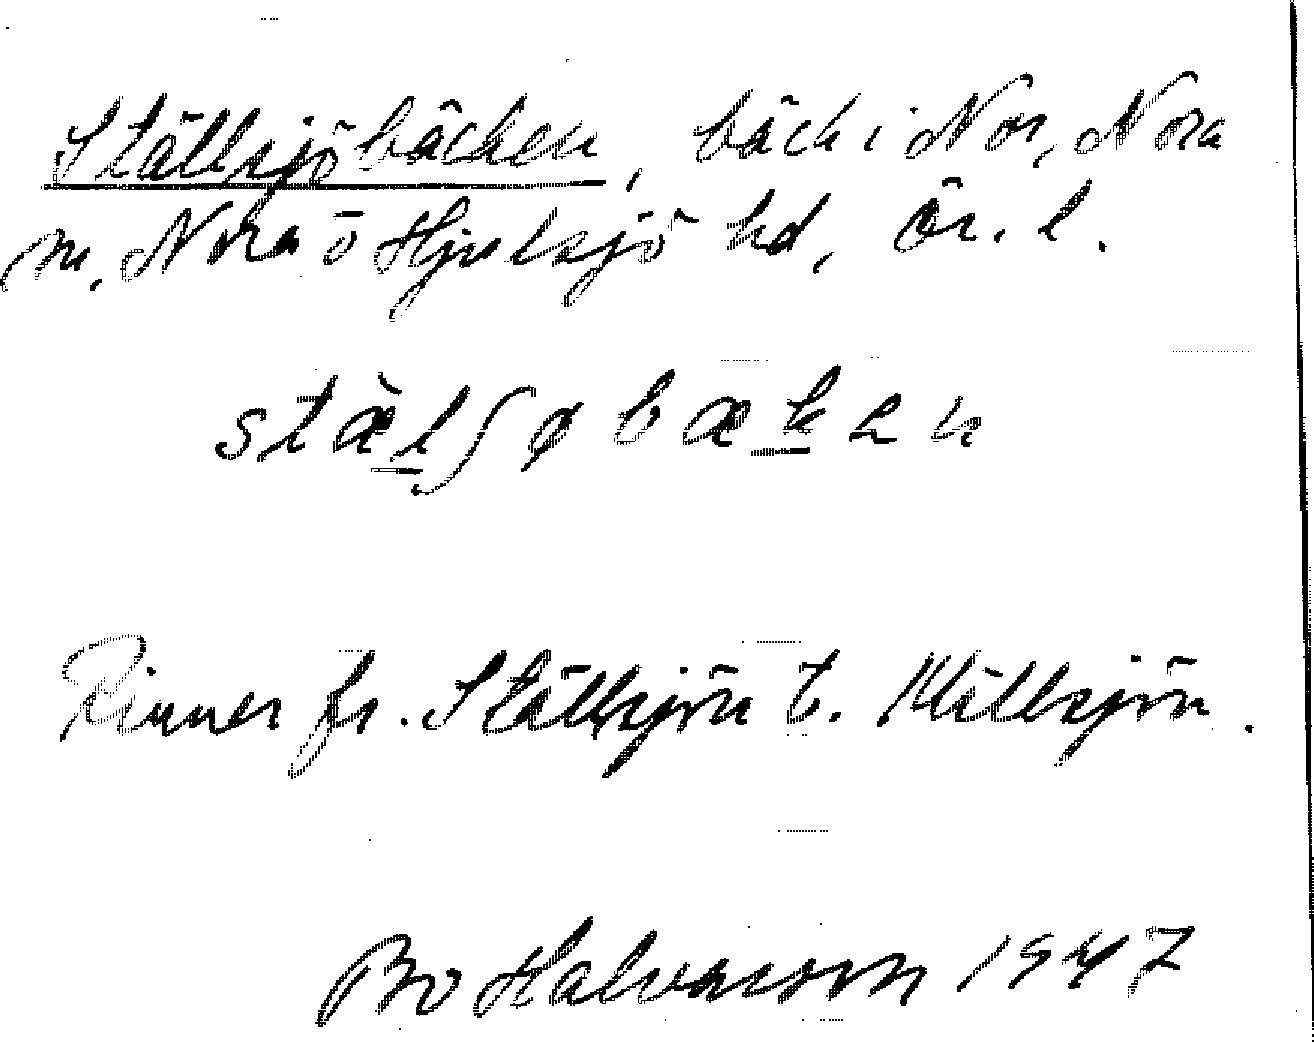 Ställsjöbäcken, bäck i Nor, Nora
m, Nora o Hjulsjö hd, Ör. l.
stæ̀lʃøbæken
Rinner fr. Ställsjön t. Mållsjön.
Bo Halvarsson 1947